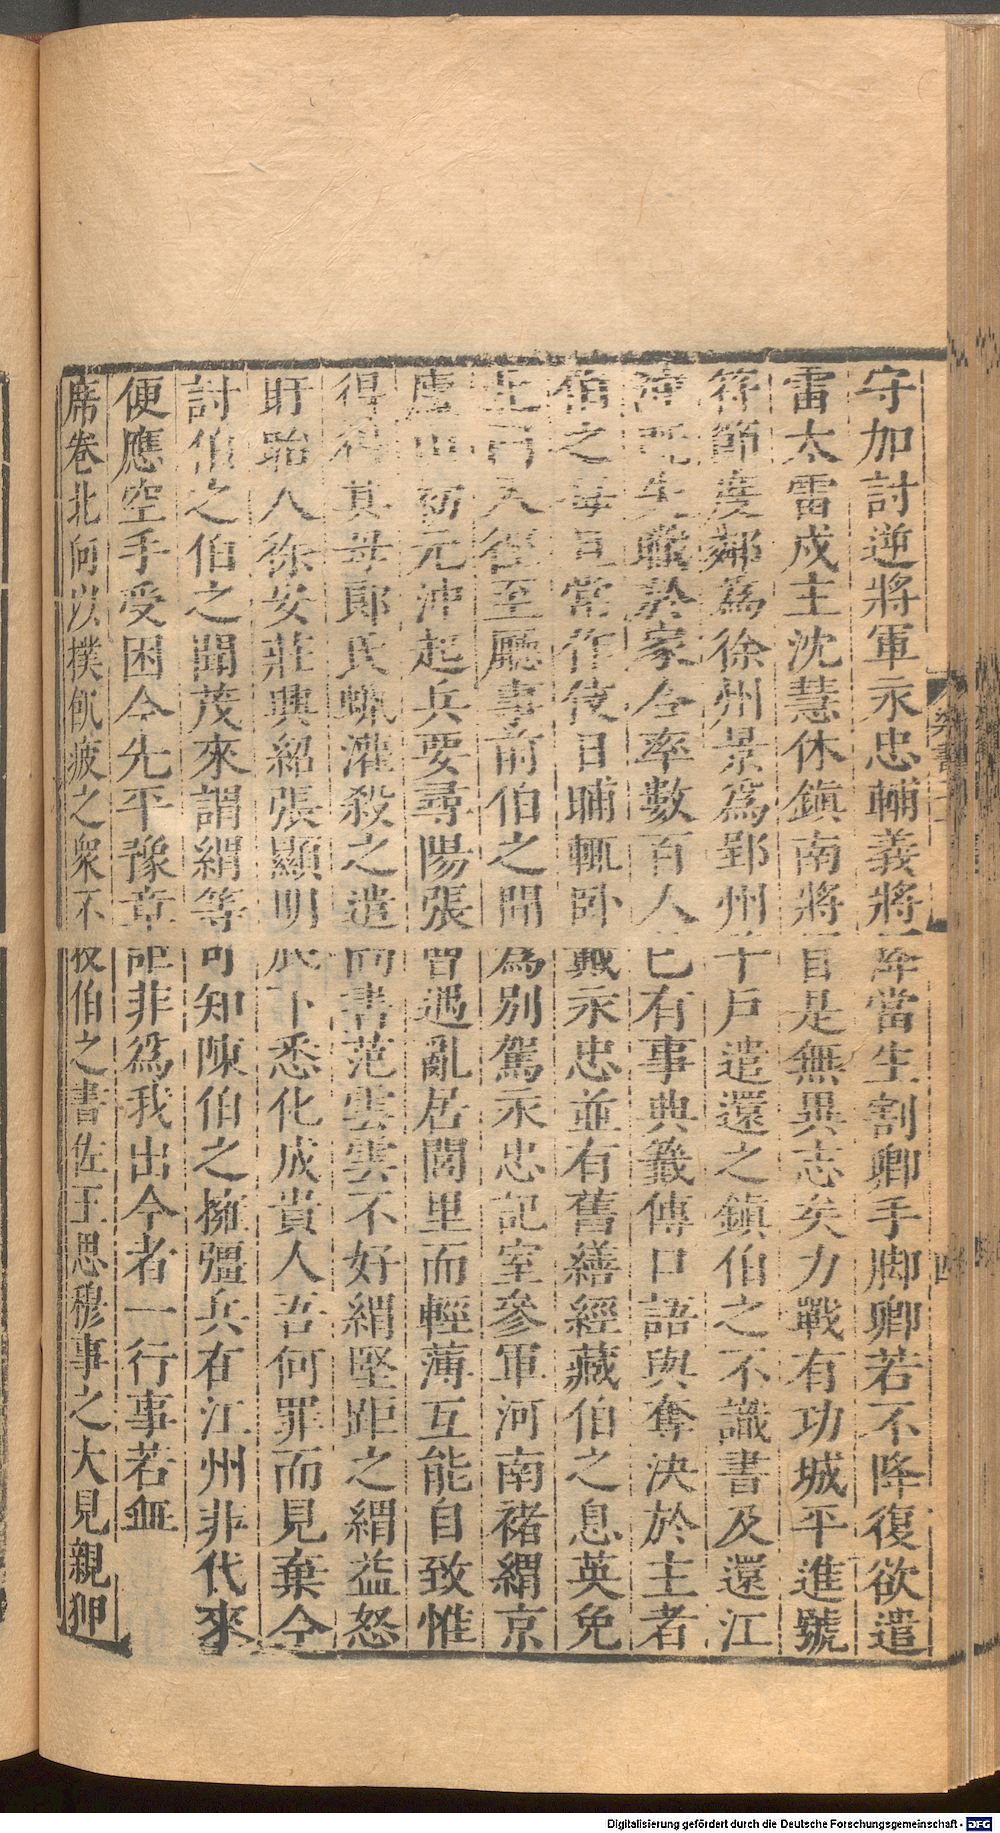 守加討逆將軍永忠輔義將降當生割卿手脚卿若不降復欲遣
雷太雷戍主沈慧休鎮南將自是無異志矣力戰有功城平進號
符節度鄰爲徐州景爲郢州千戶遣還之鎮伯之不識書及還江
冲既失職於家合率數百人已有事典籖傳口語與奪決於主者
伯之每旦常作伎日晡輒卧戴永忠並有舊繕經藏伯之息英免
左右入徑至廳事前伯之聞爲別駕永忠記室參軍河南褚緭京
初元冲起兵要尋陽張曾遇亂居閭里而輕薄互能自致惟
得得其母郎氏蠟灌殺之遣尚書范雲雲不好緭堅距之緭益怒
盱眙人徐安莊興紹張顯明底下悉化成貴人吾何罪而見棄今
討伯之伯之聞茂來謂緭等可知陳伯之擁彊兵在江州非代來
便應空手受困今先平豫章詎非爲我出今者一行事若無
席卷北向以撲飢疲之衆不役伯之書佐王思穆事之大見親狎
梁書二十
四
Digitalisierung gefördert durch die Deutsche Forschungsgemeinschaft - DFG